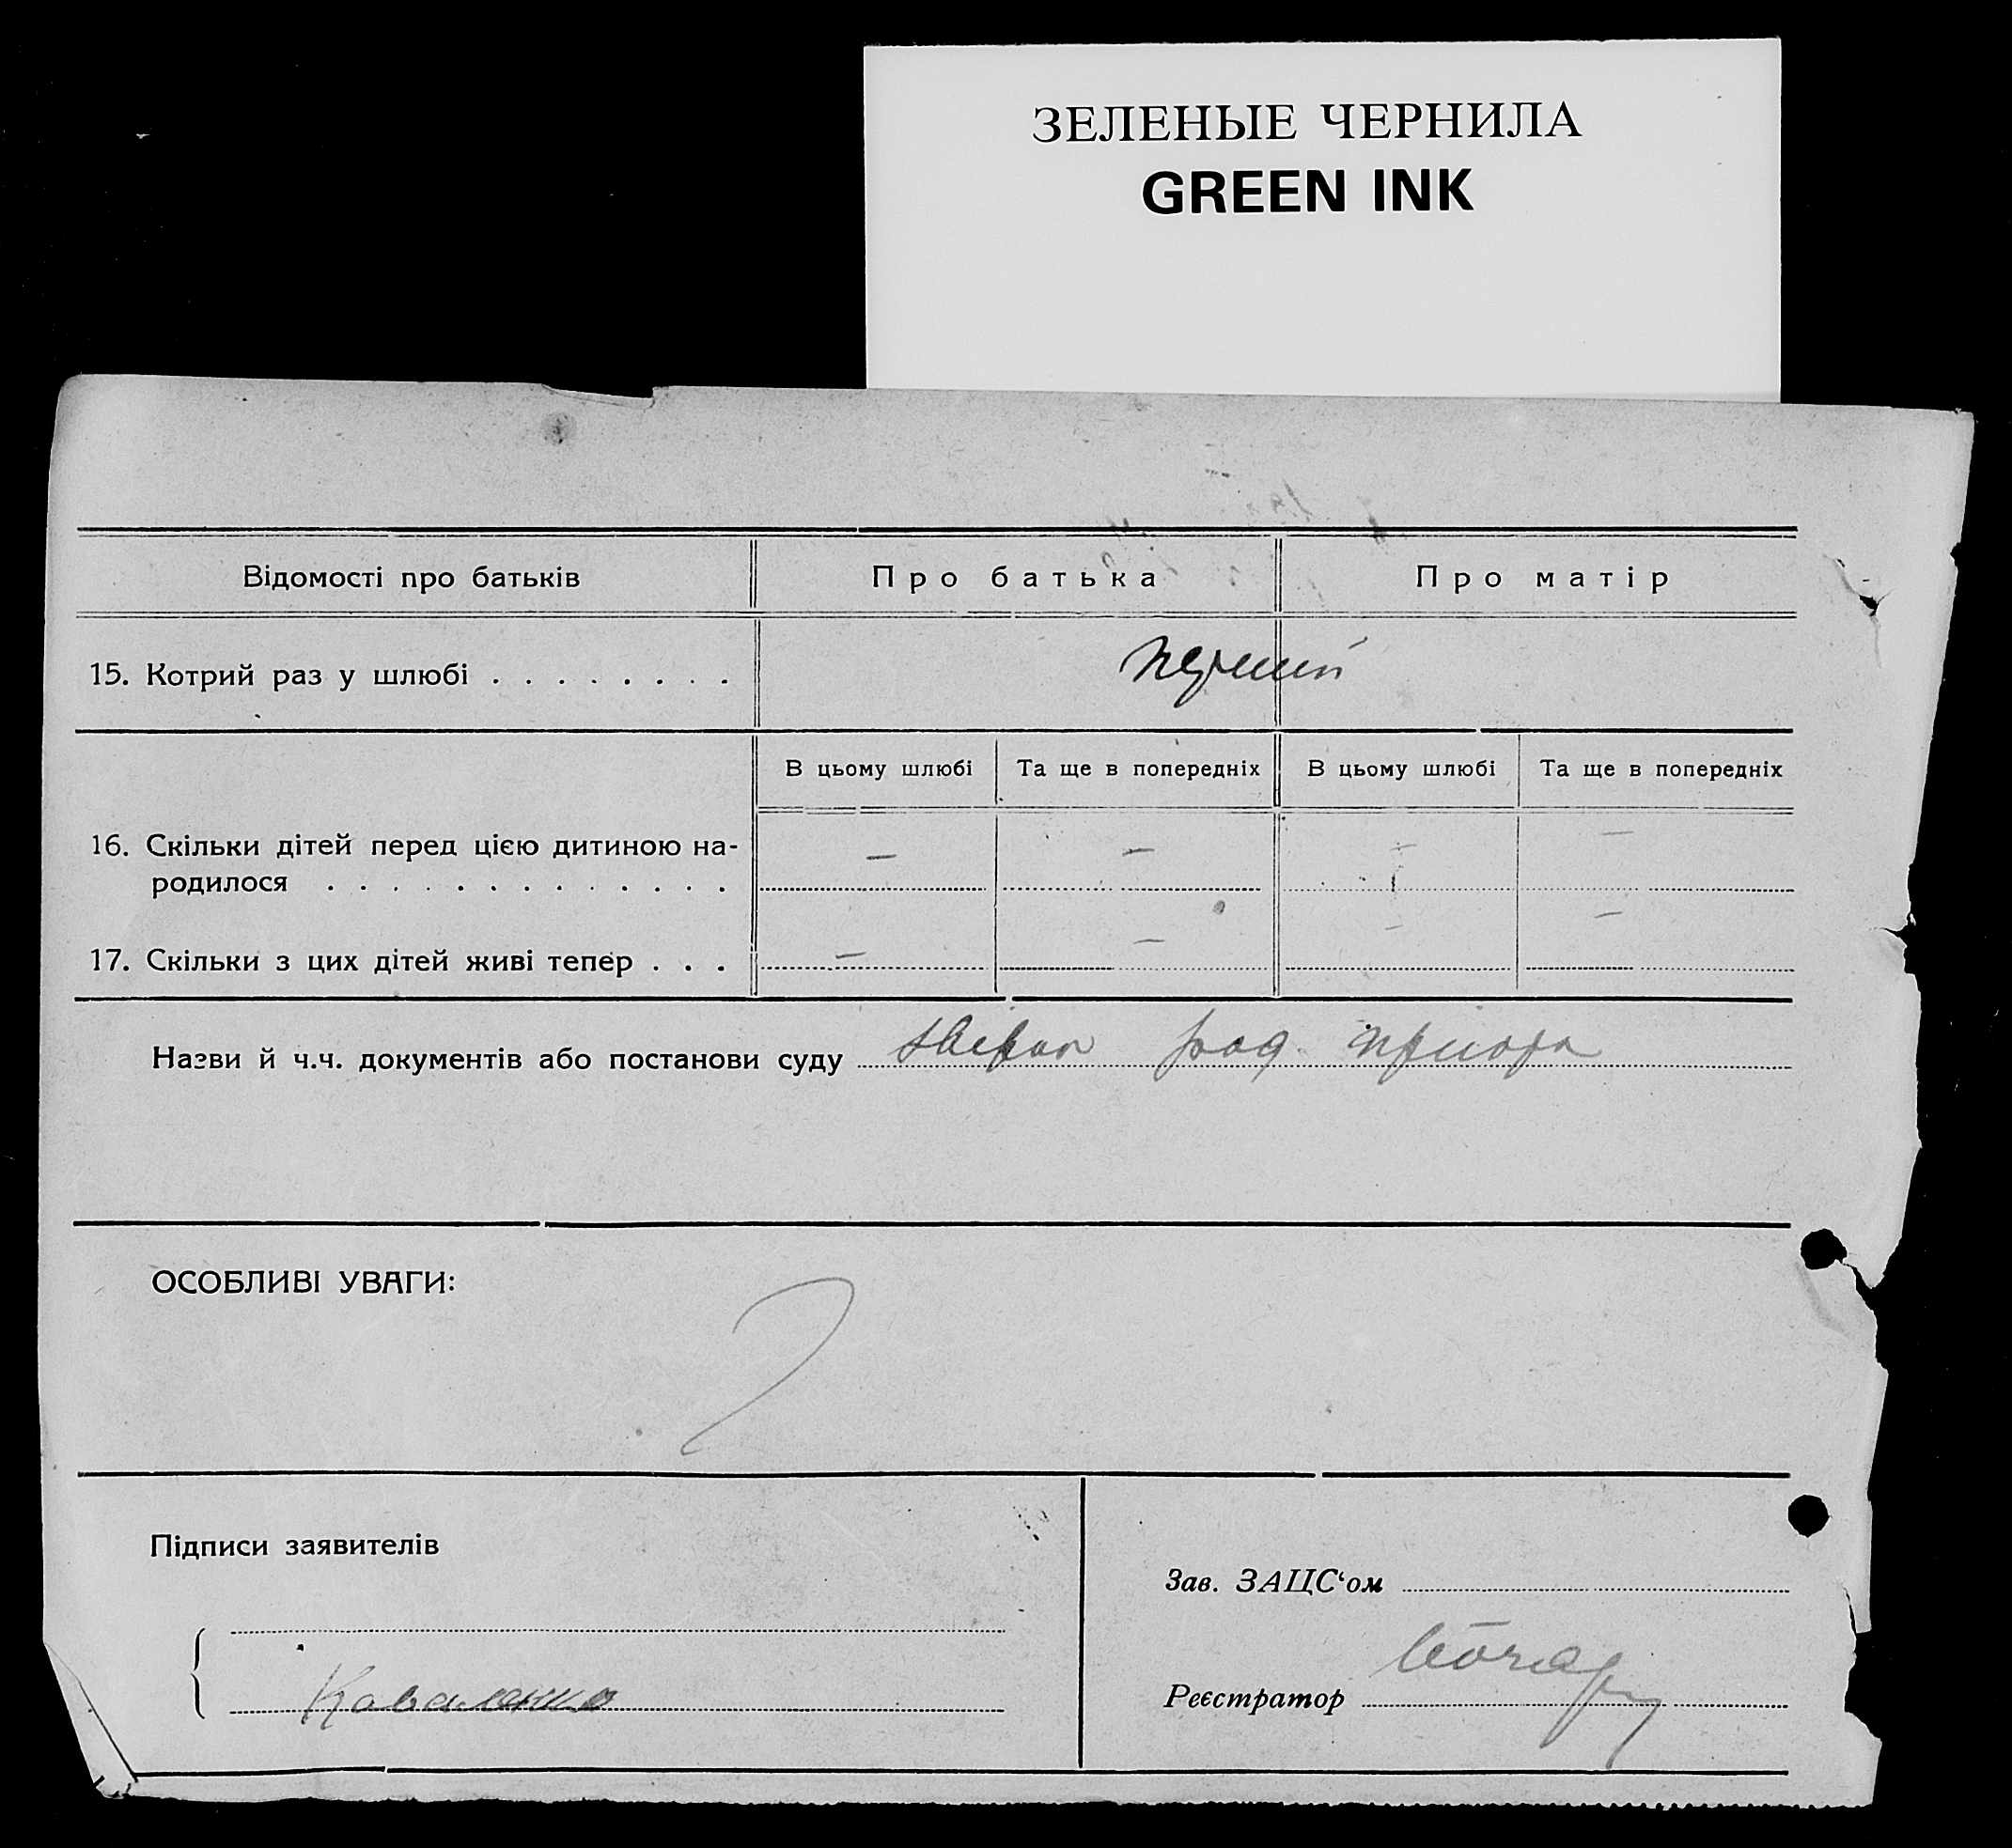 ЗЕЛЕНЫЕ ЧЕРНИЛА
GREEN INK
Відомості про батьків Про батька Про матір
15. Котрий раз у шлюбі . . . . . . . . перший
В цьому шлюбі Та ще в попередніх В цьому шлюбі Та ще в попередніх
16. Скільки дітей перед цією дитиною на-
родилося . . . . . . . . . . . . . — — — —
17. Скільки з цих дітей живі тепер . . . — — — —
Назви й ч.ч. документів або постанови суду
ОСОБЛИВІ УВАГИ:
Підписи заявителів
Зав. ЗАЦС‘ом
Коваленко
Реєстратор